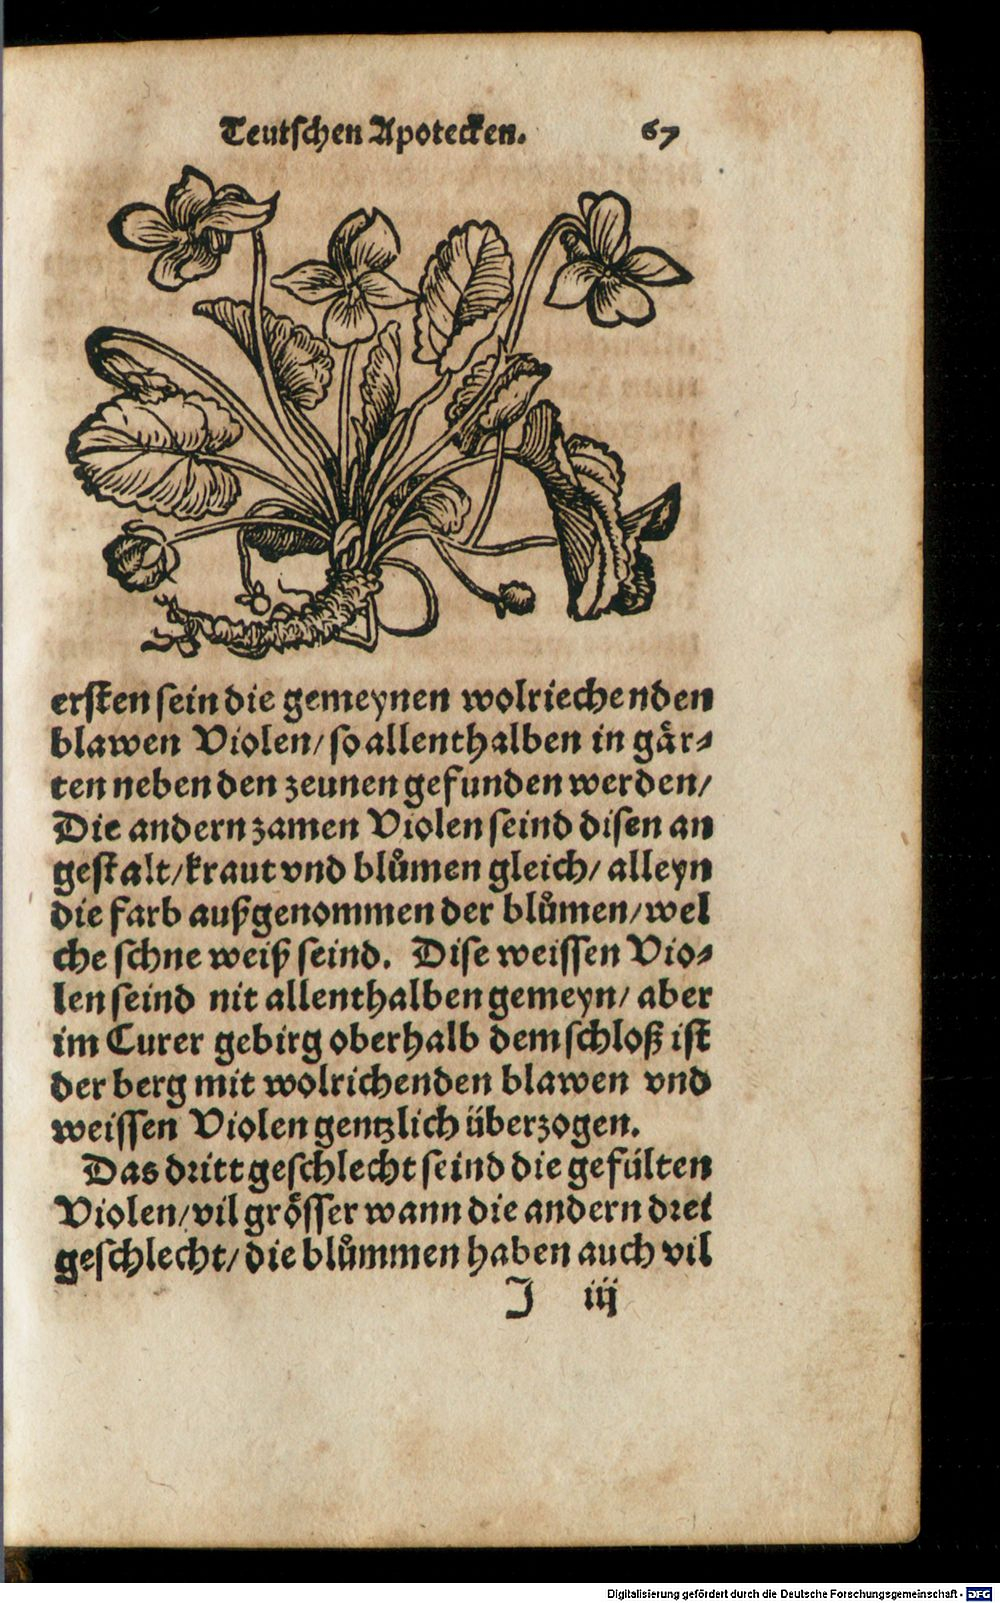 Teutschen Apotecken. 67
ersten sein die gemeynen wolriechenden
blawen Violen/ so allenthalben in gaͤr⸗
ten neben den zeunen gefunden werden/
Die andern zamen Violen seind disen an
gestalt/ kraut vnd bluͦmen gleich/ alleyn
die farb außgenommen der bluͦmen/ wel
che schne weiß seind. Dise weissen Vio⸗
len seind nit allenthalben gemeyn/ aber
im Curer gebirg oberhalb dem schloß ist
der berg mit wolrichenden blawen vnd
weissen Violen gentzlich überzogen.
Das dritt geschlecht seind die gefülten
Violen/ vil groͤsser wann die andern drei
geschlecht/ die bluͦmmen haben auch vil
J iij
Digitalisierung gefördert durch die Deutsche Forschungsgemeinschaft - DFG